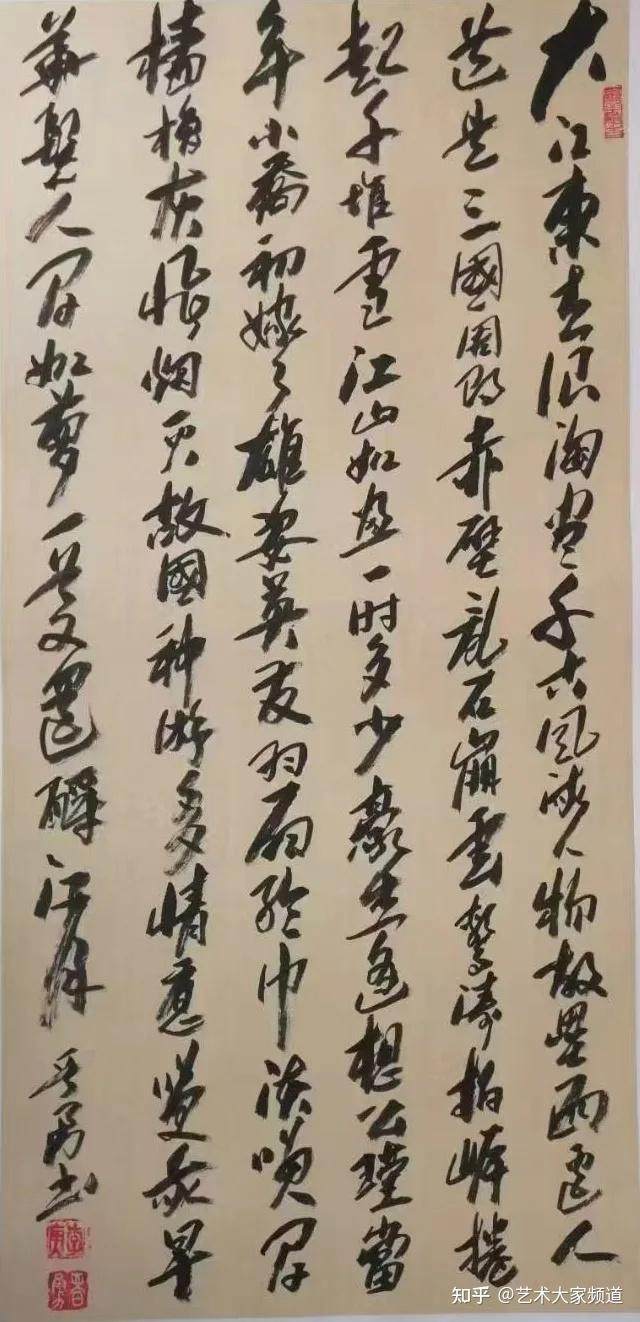 大江東去浪淘盡千古風流人物故壘西邊人
道是三國周郎赤壁亂石崩雲驚濤拍岸捲
起千堆雪江山如畫一时多少豪傑遙想公瑾當
年小喬初嫁了雄姿英發羽扇綸巾談笑間
檣櫓灰飛烟灭故國神游多情應笑我早
華髮人間如夢一尊又還酹江月 晋勇书
知乎 @艺术大家频道